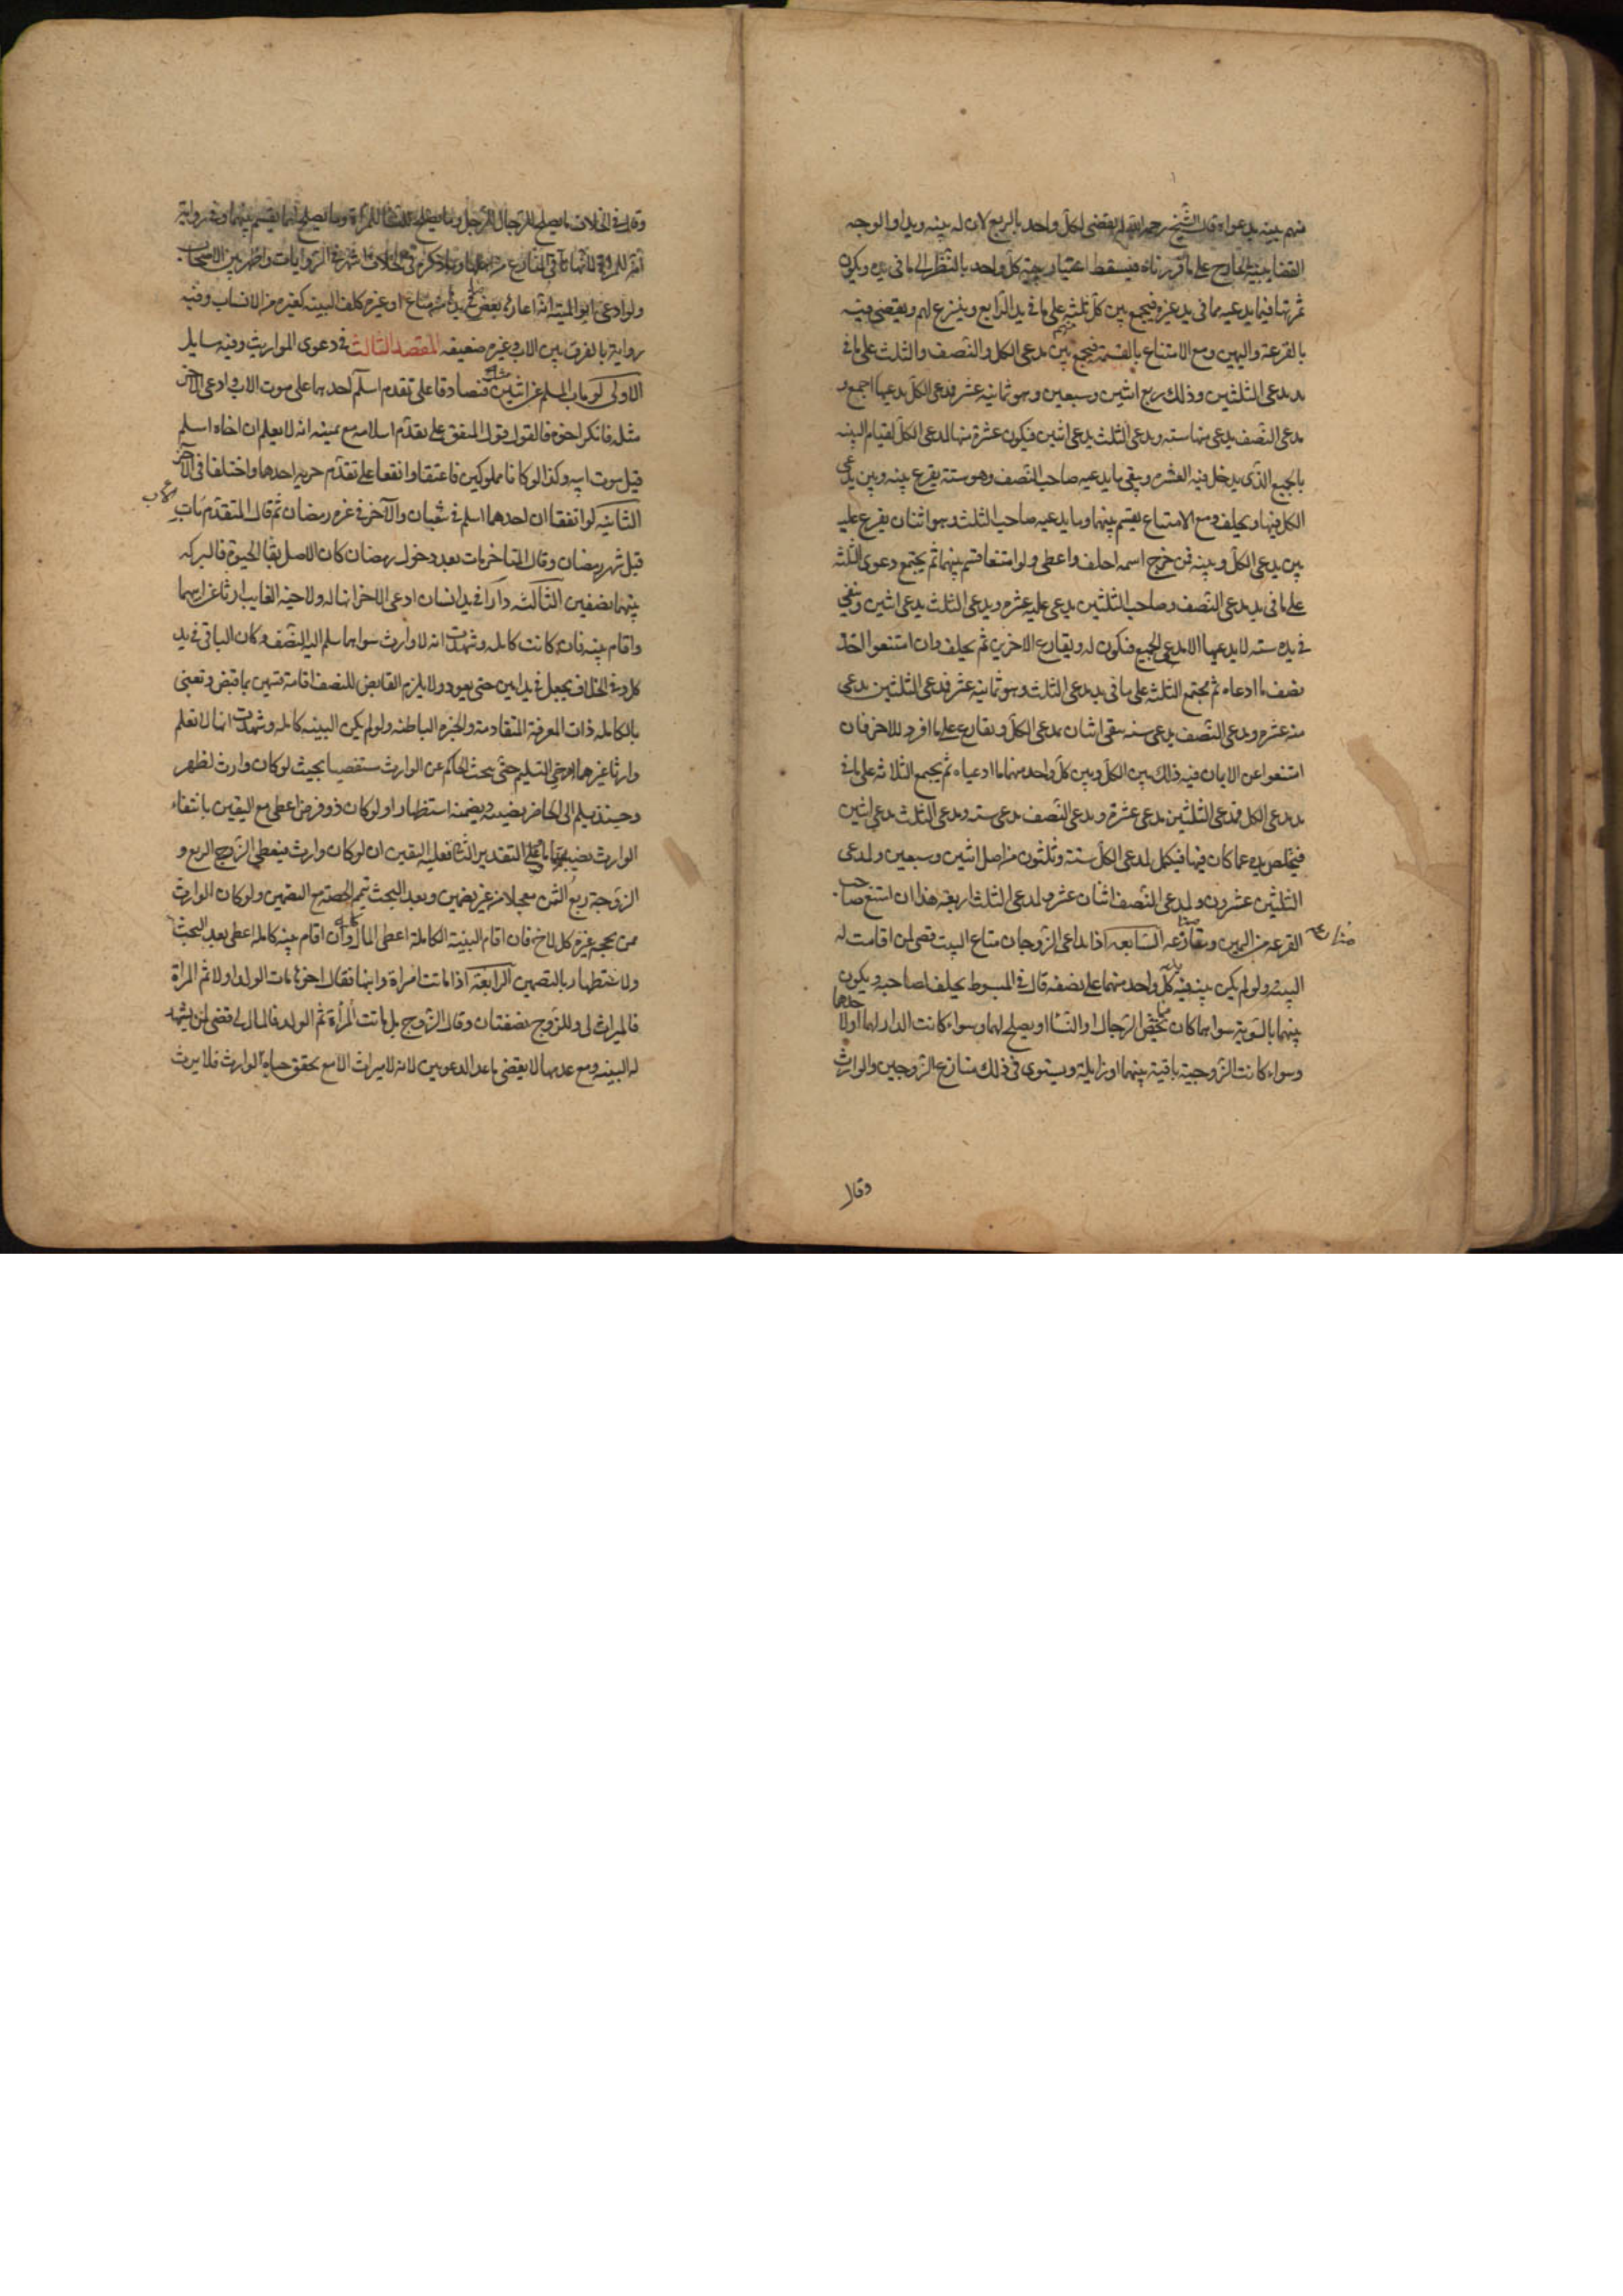 منهم بينه بدعواه قال الشيخ رحمه الله يقضى لكل واحد بالربع لان له بينه ويدا والوجه
القضا ببينه الخارج على ما قررناه فيسقط اعتبار بينه كل واحد بالنظر الى ما فى يده ويكون
ثمرتها فيما يدعيه مما فى يد غيره فيجمع بين كل ثلثه على ما فى يد الرابع وينتزع لهم ويقضى فيه
بالقرعة واليمين ومع الامتناع بالقسمة فيجمع بين مدعى الكل والنصف والثلث على ما فى
يد مدعى الثلثين وذلك ربع اثنين وسبعين وهو ثمانيه عشر فمدعى الكل يدعيها اجمع و
مدعى النصف يدعى منها سته ومدعى الثلث يدعى اثنين فيكون عشرة منها لمدعى الكل لقيام البينه
بالجميع الذى يدخل فيه العشره ويبقى ما يدعيه صاحب النصف وهو ستة يقرع بينه وبين مدعى
الكل فيها ويحلف ومع الامتناع يقسم بينهما وما يدعيه صاحب الثلث وهو اثنان يقرع عليه
بين مدعى الكل وبينه فمن خرج اسمه احلف واعطى ولو امتنعا قسم بينهما ثم يجتمع دعوى الثلثه
على ما فى يد مدعى النصف وصاحب الثلثين يدعى عليه عشره ومدعى الثلث يدعى اثنين ويبقى
فى يده سته لا يدعيها الا مدعى الجميع فيكون له ويقارع الاخرين ثم يحلف وان امتنعوا اخذ
نصف ما ادعاه ثم يجتمع الثلثه على ما فى يد مدعى الثلث وهو ثمانيه عشر فمدعى الثلثين يدعى
منه عشره ومدعى النصف يدعى سته يبقى اثنان لمدعى الكل ويقارع على ما افرد للاخر فان
امتنعوا عن الايمان فيه ذلك بين الكل وبين كل واحد منهما ما ادعياه ثم يجمع الثلاثه على ما فى
يد مدعى الكل فمدعى الثلثين يدعى عشرة ومدعى النصف يدعى سته ومدعى الثلث يدعى اثنين
فيخلص يده عما كان فيها فيكمل لمدعى الكل ستة وثلثون من اصل اثنين وسبعين ولمدعى
الثلثين عشرون ولمدعى النصف اثنا عشر ولمدعى الثلث اربعة هذا ان امتنع صاحب
القرعه من اليمين ومقارعه السابعه اذا تداعى الزوجان متاع البيت قضى لمن اقامت له
البينه ولو لم يكن بينه فيد كل واحد منهما على نصفه قال فى المبسوط يحلف لصاحبه ويكون
بينهما بالسويه سوا مما كان يخص الرجال او النسا او يصلح لهما وسواء كانت الدار لهما او لاحدهما
وسواء كانت الزوجية باقية بينهما او زايلة ويستوى فى ذلك تنازع الزوجين والوارث
وقال
وقال فى الخلاف ما يصلح للرجال للرجل وما يصلح للنسا للمراة وما يصلح لهما يقسم بينهما وفى رواية
انه للمراة لانها تاتى بالمتاع من اهلها وما ذكره فى الخلاف اشهر فى الروايات واظهر بين الاصحاب
ولو ادعى ابو الميته انه اعارها بعض ما فى يدها من متاع او غيره كلف البينه كغيره من الانساب وفيه
رواية بالفرق بين الاب وغيره ضعيفه المقصد الثالث فى دعوى المواريث وفيه مسايل
الاولى لو مات المسلم عن اثنين فتصادقا على تقدم اسلام احدهما على موت الاب وادعى الاخر
مثله فانكر اخوه فالقول قول المتفق على تقدم اسلامه مع يمينه انه لا يعلم ان اخاه اسلم
قبل موت ابيه وكذا لو كانا مملوكين فاعتقا واتفقا على تقدم حريه احدهما واختلفا فى الاخر
الثانيه لو اتفقا ان احدهما اسلم فى شعبان والآخر فى غره رمضان ثم قال المتقدم مات الاب
قبل شهر رمضان وقال المتاخر مات بعد دخول رمضان كان الاصل بقا الحيوة فالتركه
بينهما نصفين الثالثه دار فى يد انسان ادعى الاخر انها له ولاخيه الغايب ارثا عن ابيهما
واقام بينه فان كانت كامله وشهدت انه لا وارث سواهما سلم اليه النصف وكان الباقى فى يد
كل وفى الخلاف يجعل فى يد امين حتى يعود ولا يلزم القابض للنصف اقامة ضمين بما قبض ونعنى
بالكامله ذات المعرفة المتقادمة والخبره الباطنه ولو لم يكن البينه كامله وشهدت انها لا تعلم
وارثا غيرهما ارجى التسليم حتى يبحث الحاكم عن الوارث مستقصيا بحيث لو كان وارث لظهر
وحينئذ يسلم الى الحاضر نصيبه ويضمنه استظهارا ولو كان ذو فرض اعطى مع اليقين بانتفاء
الوارث نصيبه تاما وعلى التقدير الثانى فعليه اليقين ان لو كان وارث فيعطى الزوج الربع و
الزوجة ربع الثمن معجلا من غير تضمين وبعد البحث يتم الحصة مع التضمين ولو كان الوارث
ممن يحجبه غيره كالاخ فان اقام البينة الكاملة اعطى المال وان اقام بينه كامله اعطى بعد البحث
ولاستظهار بالتضمين الرابعة اذا ماتت امراة وابنها فقال اخوها مات الولد اولا ثم المراة
فالميراث لى وللزوج نصفتان وقال الزوج بل ماتت المراة ثم الولد فالمال لى قضى لمن يشهد
له البينه ومع عدمها لا يقضى باحد الدعويين لانه لا ميراث الا مع تحقق حياه الوارث فلا يرث